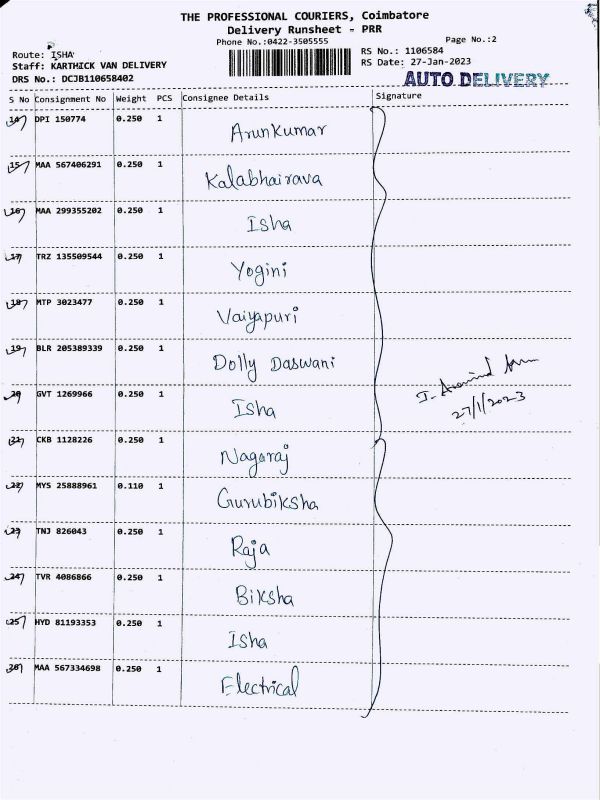 THE PROFESSIONAL COURIERS, Coimbatore
Delivery Runsheet - PRR
Phone No.:0422-3505555
Page No.:2
Route: ISHA
RS No.: 1106584
Staff: KARTHICK VAN DELIVERY
RS Date: 27-Jan-2023
DRS No.: DCJB110658402
AUTO DELIVERY
S No Consignment No Weight PCS Consignee Details Signature
14 DPI 150774 0.250 1 Arunkumar
15 MAA 567406291 0.250 1 Kalabhairava
16 MAA 299355202 0.250 1 Isha
17 TRZ 135509544 0.250 1 Yogini
18 MTP 3023477 0.250 1 Vaiyapuri
19 BLR 205389339 0.250 1 Dolly Daswani
20 GVT 1269966 0.250 1 Isha
27/1/2023
21 CKB 1128226 0.250 1 Nagaraj
22 MYS 25888961 0.110 1 Gurubiksha
23 TNJ 826043 0.250 1 Raja
24 TVR 4086866 0.250 1 Biksha
25 HYD 81193353 0.250 1 Isha
26 MAA 567334698 0.250 1 Electrical